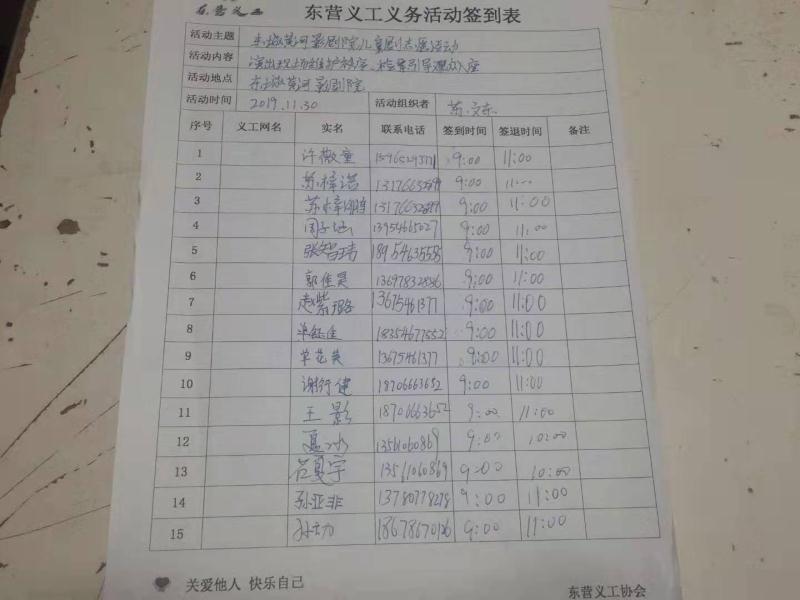 东营义工 东营义工义务活动签到表
活动主题 东城黄河影剧院儿童剧志愿活动
活动内容 演出现场维护秩序、检票引导观众入座
活动地点 东城黄河影剧院
活动时间 2019.11.30 活动组织者 苏文东
序号 义工网名 实名 联系电话 签到时间 签退时间 备注
1 许薇童 9:00 11:00
2 苏梓诺 9:00 11:00
3 9:00 11:00
4 周子涵 13954665027 9:00 11:00
5 张智玮 18954635555 9:00 11:00
6 郭佳昊 13697832886 9:00 11:00
7 赵紫璐 13675461377 9:00 11:00
8 18354677552 9:00 11:00
9 13675461377 9:00 11:00
10 谢行健 18706663652 9:00 11:00
11 王影 18706663652 9:00 11:00
12 夏冰 13561060869 9:00 10:00
13 吕夏宇 13561060869 9:00 10:00
14 孙亚非 13780778278 9:00 11:00
15 9:00 11:00
关爱他人 快乐自己
东营义工协会